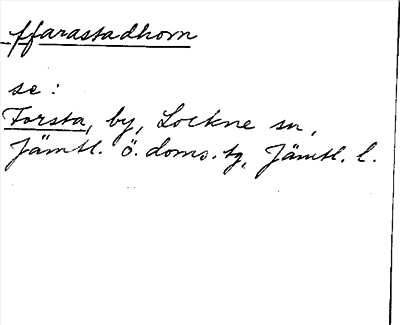 ffarastadhom
se:
Forsta, by, Lockne sn,
Jämtl. ö. doms. tg, Jämtl. l.